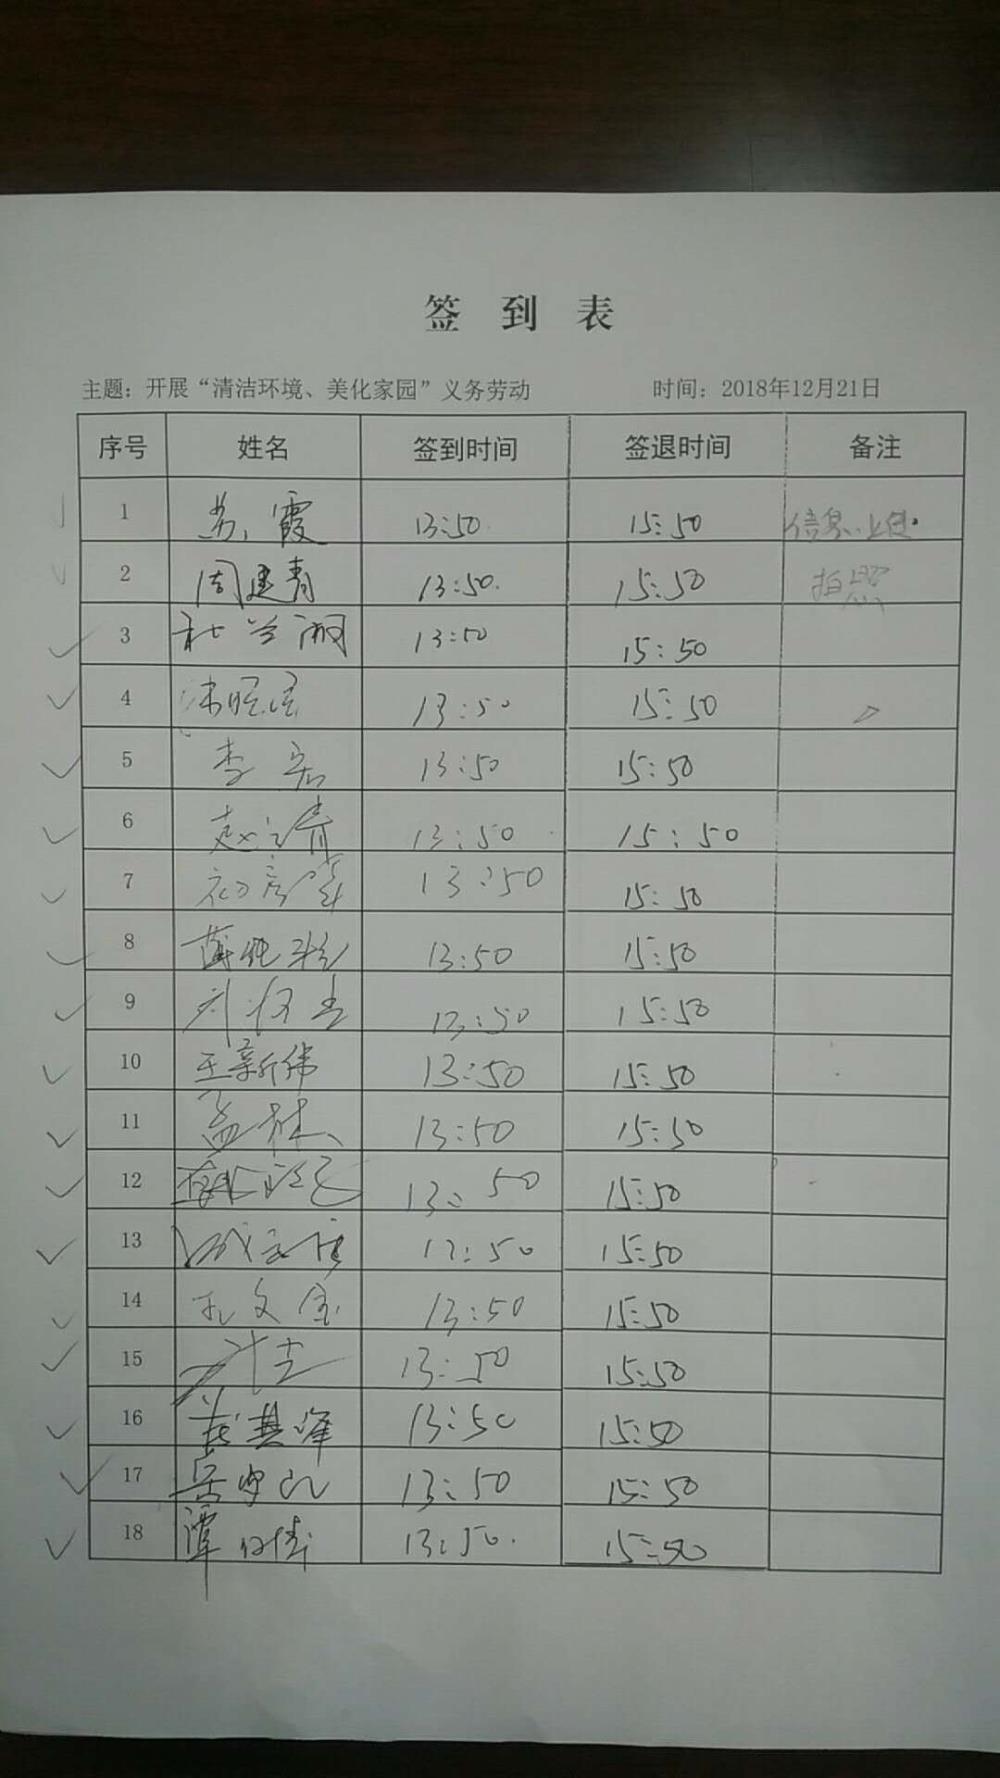 签到表
主题：开展“清洁环境、美化家园”义务劳动 时间：2018年12月21日
序号 姓名 签到时间 签退时间 备注
1 苏霞 13:50 15:50 信息上传
2 周建青 13:50 15:50 拍照
3 杜兰湘 13:50 15:50
4 13:50 15:50
5 李宏 13:50 15:50
6 赵青 13:50 15:50
7 13:50 15:50
8 13:50 15:50
9 13:50 15:50
10 王新伟 13:50 15:50
11 孟林 13:50 15:50
12 13:50 15:50
13 13:50 15:50
14 孔文金 13:50 15:50
15 13:50 15:50
16 13:50 15:50
17 13:50 15:50
18 谭 13:50 15:50